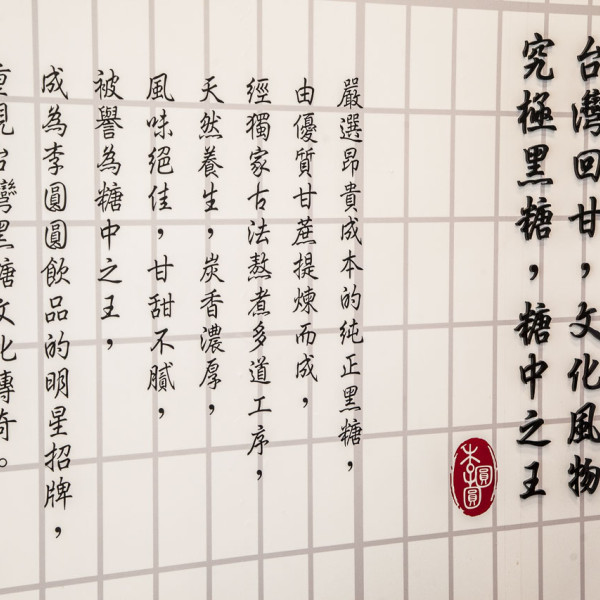 台灣回甘，文化風物
究極黑糖，糖中之王
李圓圓
嚴選昂貴成本的純正黑糖，
由優質甘蔗提煉而成，
經獨家古法熬煮多道工序，
天然養生，炭香濃厚，
風味絕佳，甘甜不膩，
被譽為糖中之王，
成為李圓圓飲品的明星招牌，
重現台灣黑糖文化傳奇。